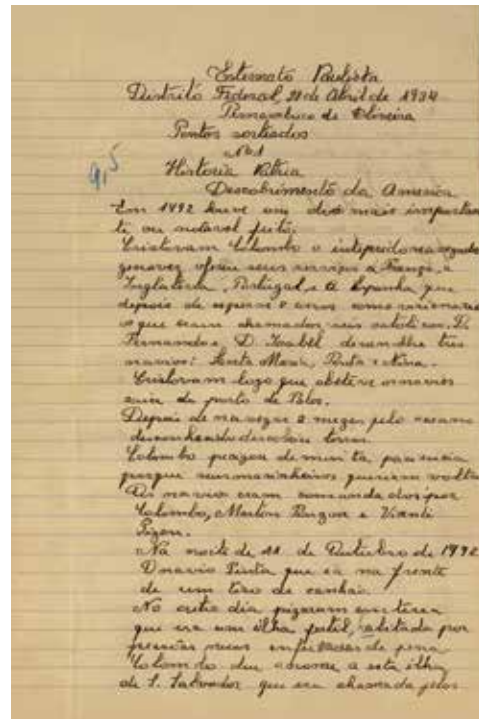 Externato Paulista
Distrito Federal, 21 de Abril de 1934
Pernambuco de Oliveira
Pontos sorteados
Nº 1
9,5
Historia Patria
Descobrimento da America
Em 1492 houve um dos mais importan
te ou notavel feito.
Cristovam Colombo o intepido navegador
genovez ofereu seus serviços a França, a
Inglaterra, Portugal e a Espanha que
depois de esperar 8 anos como visionario
os que eram chamados reis catolicos. D.
Fernando e D. Isabel deram-lhe tres
navios: Santa Maria, Pinta e Nina.
Cristovam logo que obteve os navios
saiu do porto de Palos.
Depois de navegar 2 mezes pelo oceano
desconhecido descobriu terra.
Colombo precizou de muita paciencia
porque seus marinheiros queriam voltar
Os navios eram comandados por
Colombo, Martin Pinzon e Vicente
Pinzon.
Na noite de 11 de Outubro de 1492
O navio Pinta que ia na frente
de um tiro de canhão.
No outro dia pizaram em terra
que era um ilha fertil, abitada por
pessôas nuas enfeitadas de pena
Colombo deu o nome a esta ilha
de S. Salvador que era chamada pelos